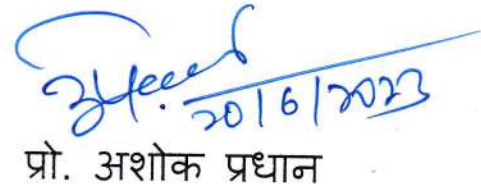 20/6/2023
प्रो. अशोक प्रधान